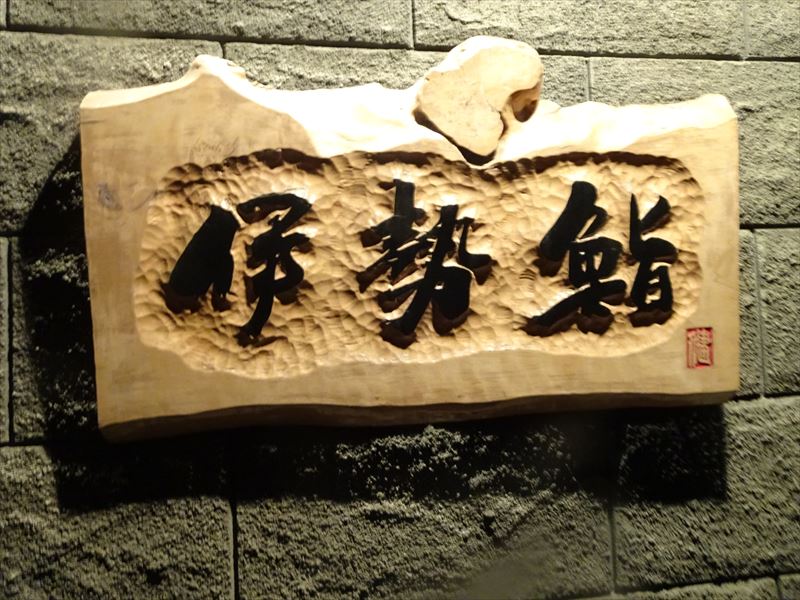 伊勢鮨